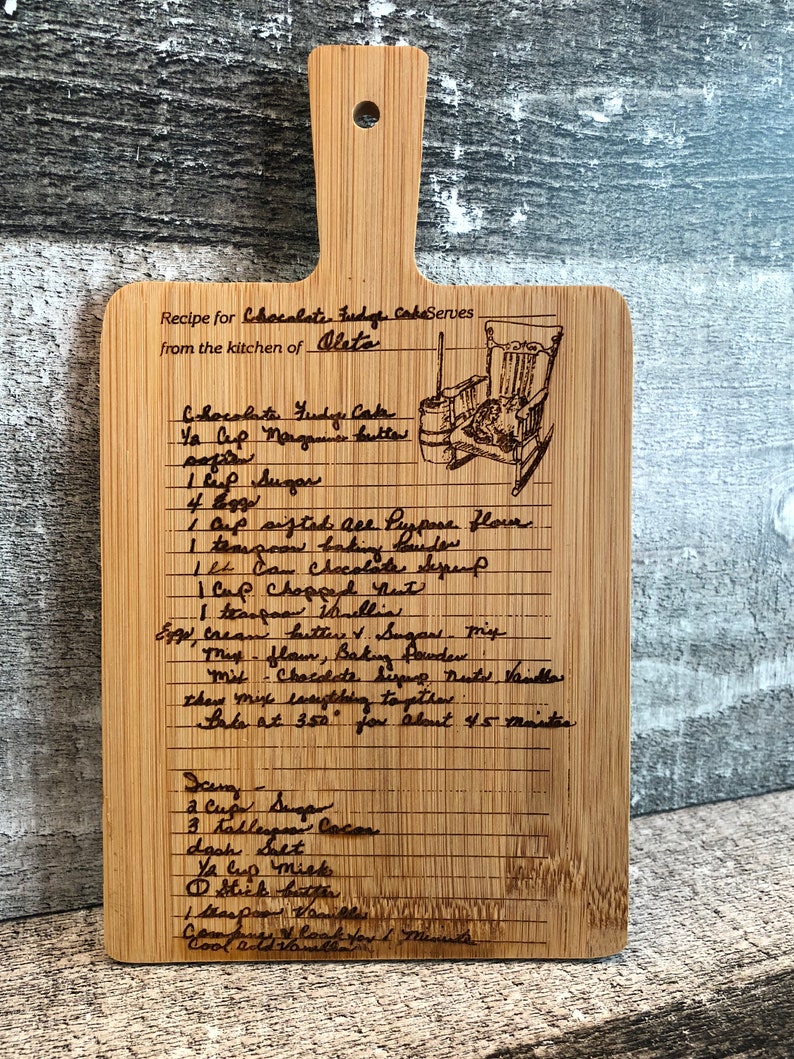 Recipe for Chocolate Fudge Cake Serves
from the kitchen of Oleta
Chocolate Fudge Cake
1/2 Cup Margarine butter
soften
1 Cup Sugar
4 Eggs
1 Cup sifted all Purpose flour
1 teaspoon baking Powder
1 Can Chocolate Syrup
1 Cup Chopped Nut
1 teaspoon Vanillia
Eggs, Cream butter & Sugar - Mix
Mix - flour, Baking Powder
Mix - Chocolate Syrup, Nuts Vanilla
then Mix everything together
Bake at 350° for about 45 minutes
Icing -
2 Cups Sugar
3 tablespoon Cocoa
dash Salt
1/2 Cup Milk
1 Stick butter
1 teaspoon Vanilla
Combine & Cook for 1 Minute
Cool add Vanilla